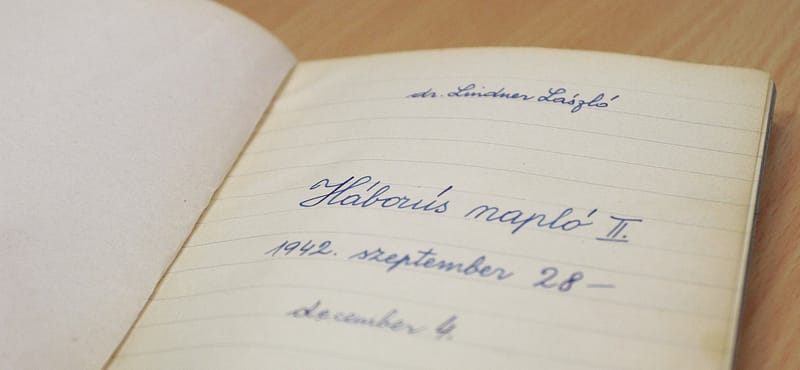 dr. Lindner László
Háborús napló II.
1942. szeptember 28–
december 4.